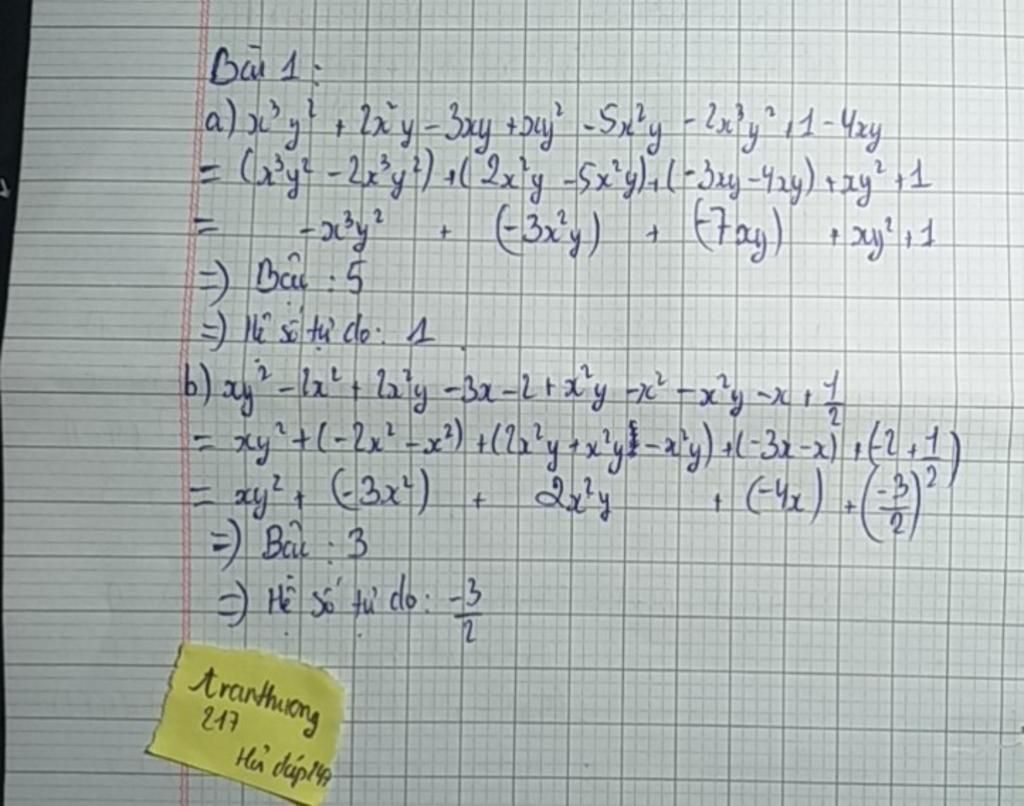 Bài 1 :
a) x³y² + 2x²y - 3xy + xy² - 5x²y - 2x³y² + 1 - 4xy
= (x³y² - 2x³y²) + (2x²y - 5x²y) + (-3xy - 4xy) + xy² + 1
= -x³y² + (-3x²y) + (-7xy) + xy² + 1
=) Bậc : 5
=) Hệ số tự do : 1
b) xy² - 2x² + 2x²y - 3x - 2 + x²y - x² - x²y - x + 1/2
= xy² + (-2x² - x²) + (2x²y + x²y - x²y) + (-3x - x) + (-2 + 1/2)
= xy² + (-3x²) + 2x²y + (-4x) + (-3/2)
=) Bậc : 3
=) Hệ số tự do : -3/2
tranthuong
217
Hỏi đáp 247